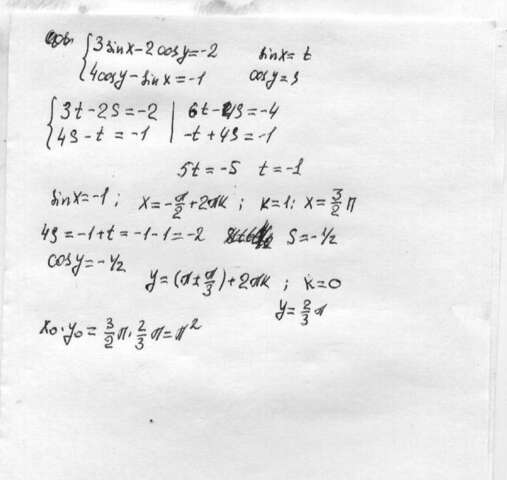 {3sinx-2cosy=-2 sinx=t
{4cosy-sinx=-1 cosy=s
{3t-2s=-2 | 6t-4s=-4
{4s-t=-1 | -t+4s=-1
5t=-5 t=-1
sinx=-1; x=-π/2+2πk; k=1: x=3/2π
4s=-1+t=-1-1=-2 s=-1/2
cosy=-1/2
y=(π±π/3)+2πk; k=0
y=2/3π
x₀·y₀=3/2π·2/3π=π²